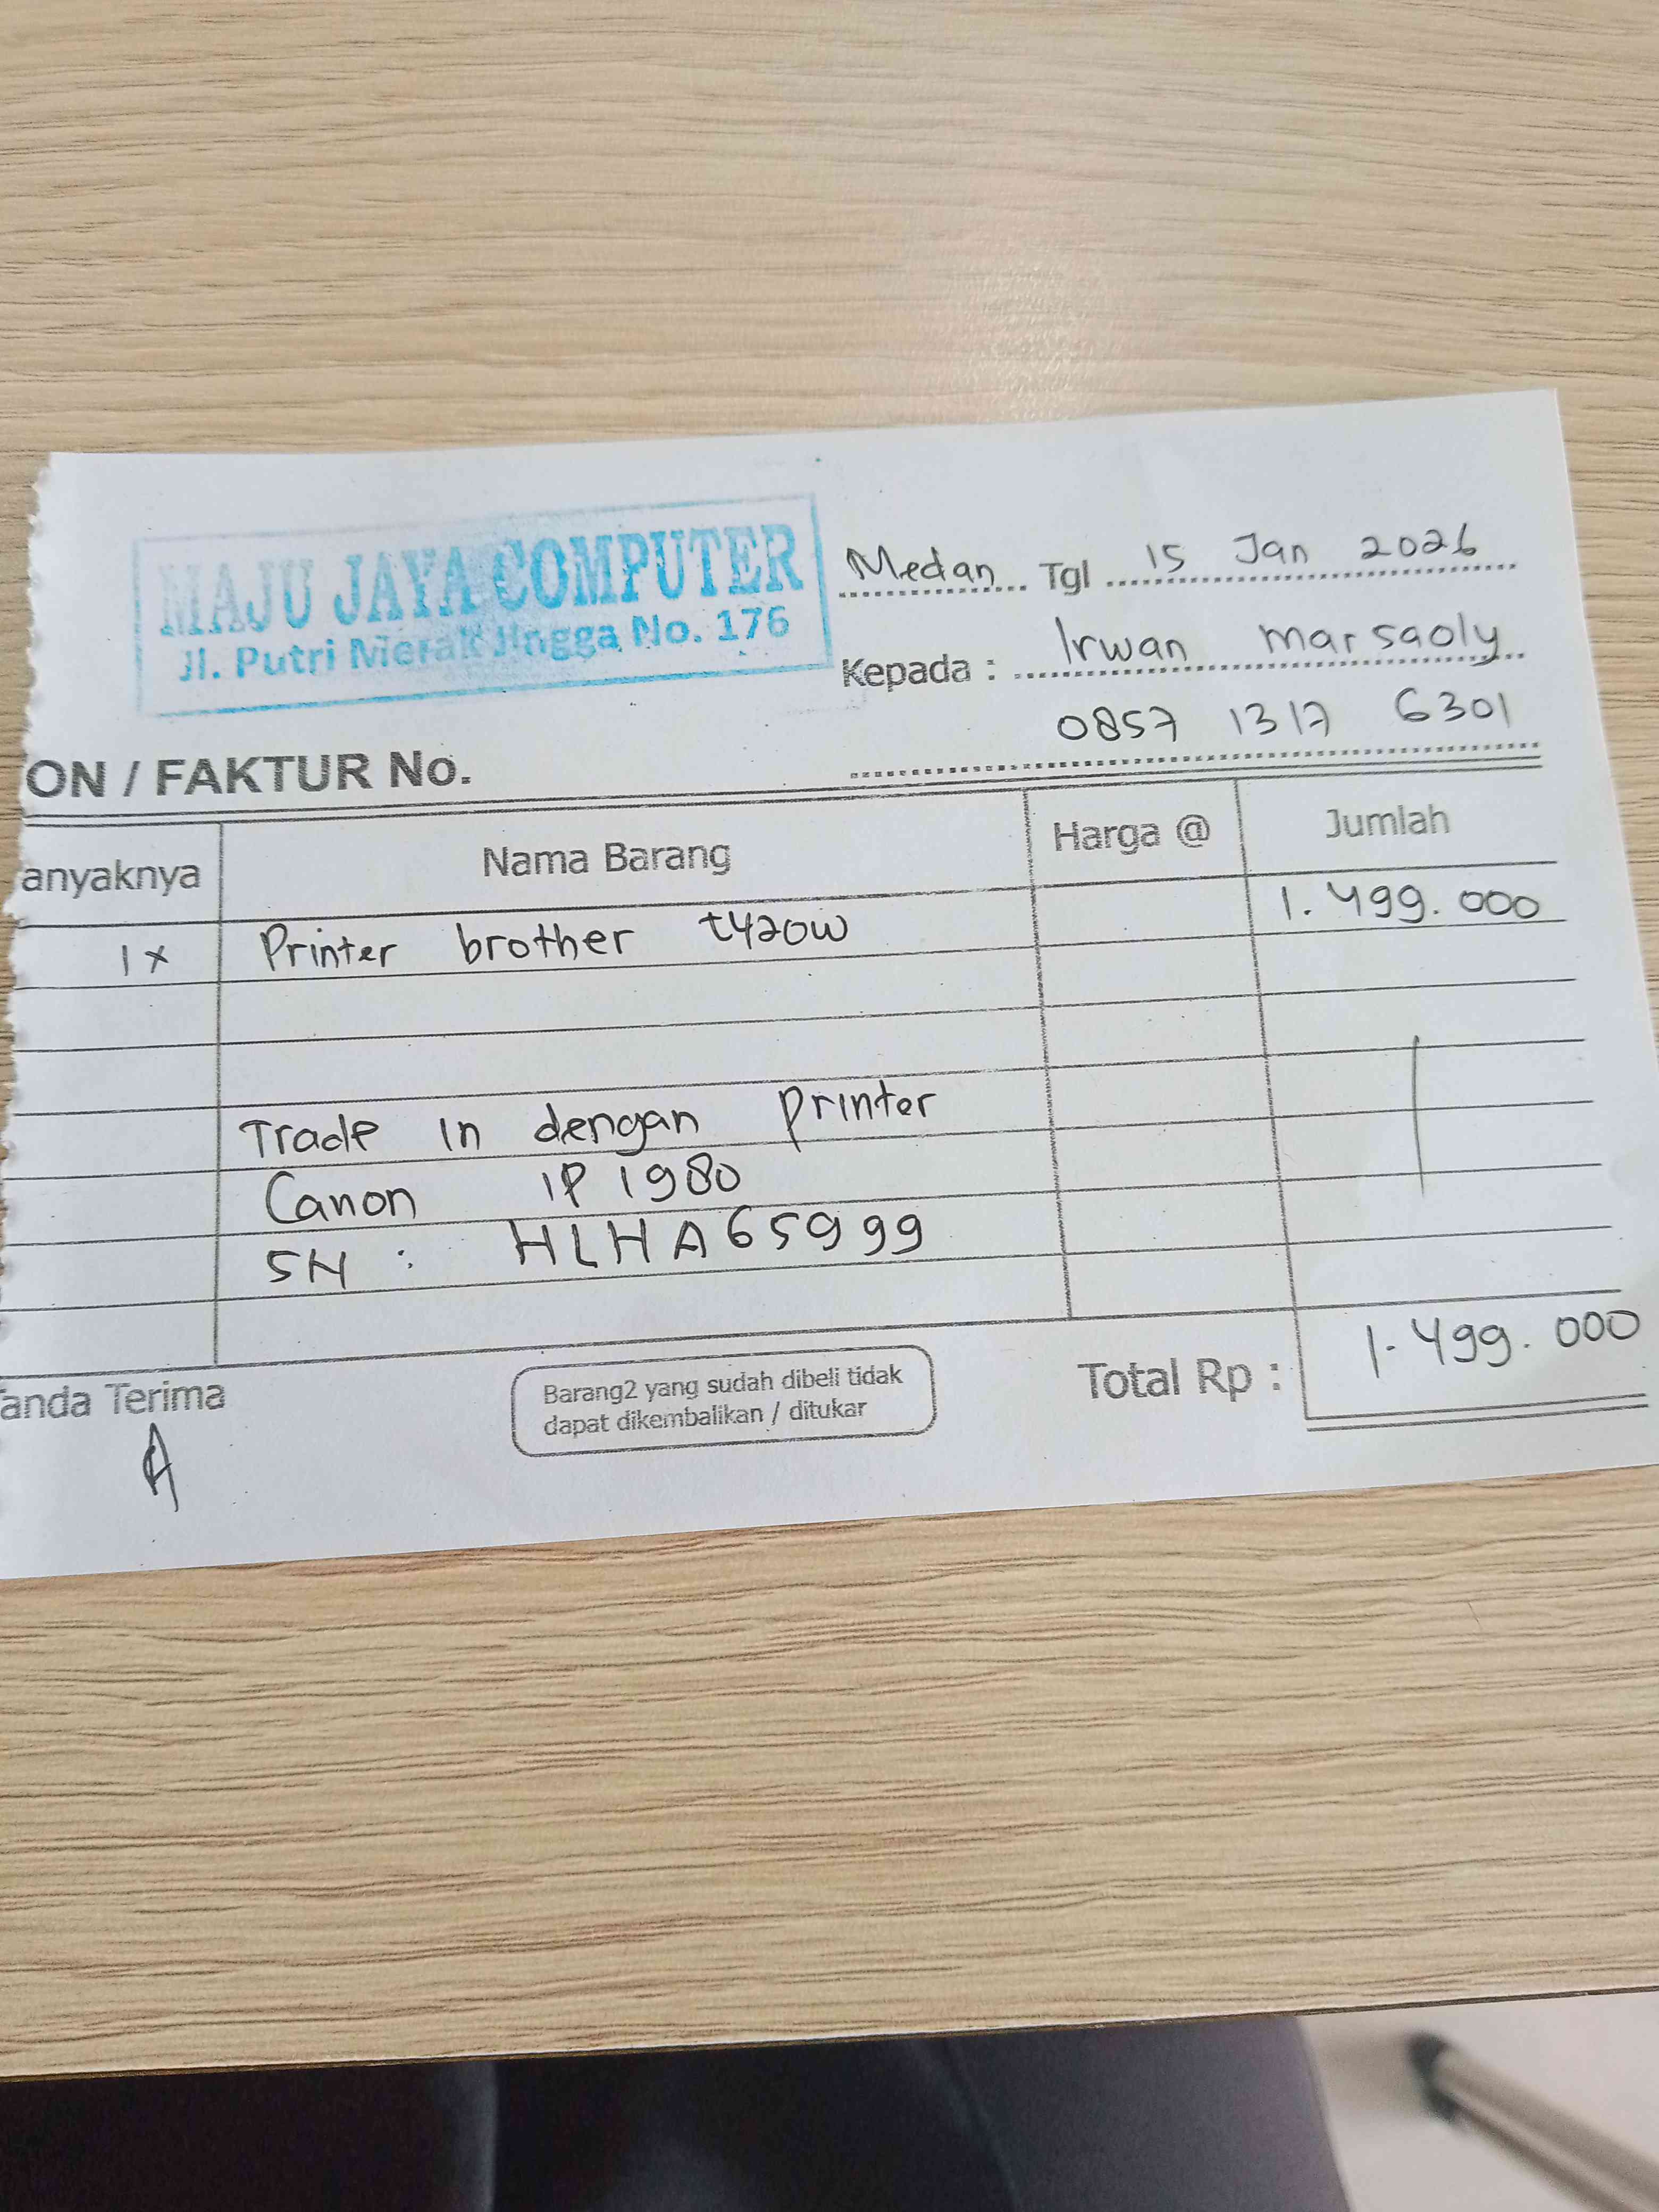 MAJU JAYA COMPUTER
Jl. Putri Merak Jingga No. 176
Medan Tgl 15 Jan 2026
Kepada : Irwan marsaoly
0857 1317 6301
ON / FAKTUR No.
anyaknya Nama Barang Harga @ Jumlah
1x Printer brother t420w 1.499.000
Trade in dengan printer
Canon IP 1980
SN : HLHA65999
anda Terima
Barang2 yang sudah dibeli tidak
dapat dikembalikan / ditukar
Total Rp : 1.499.000